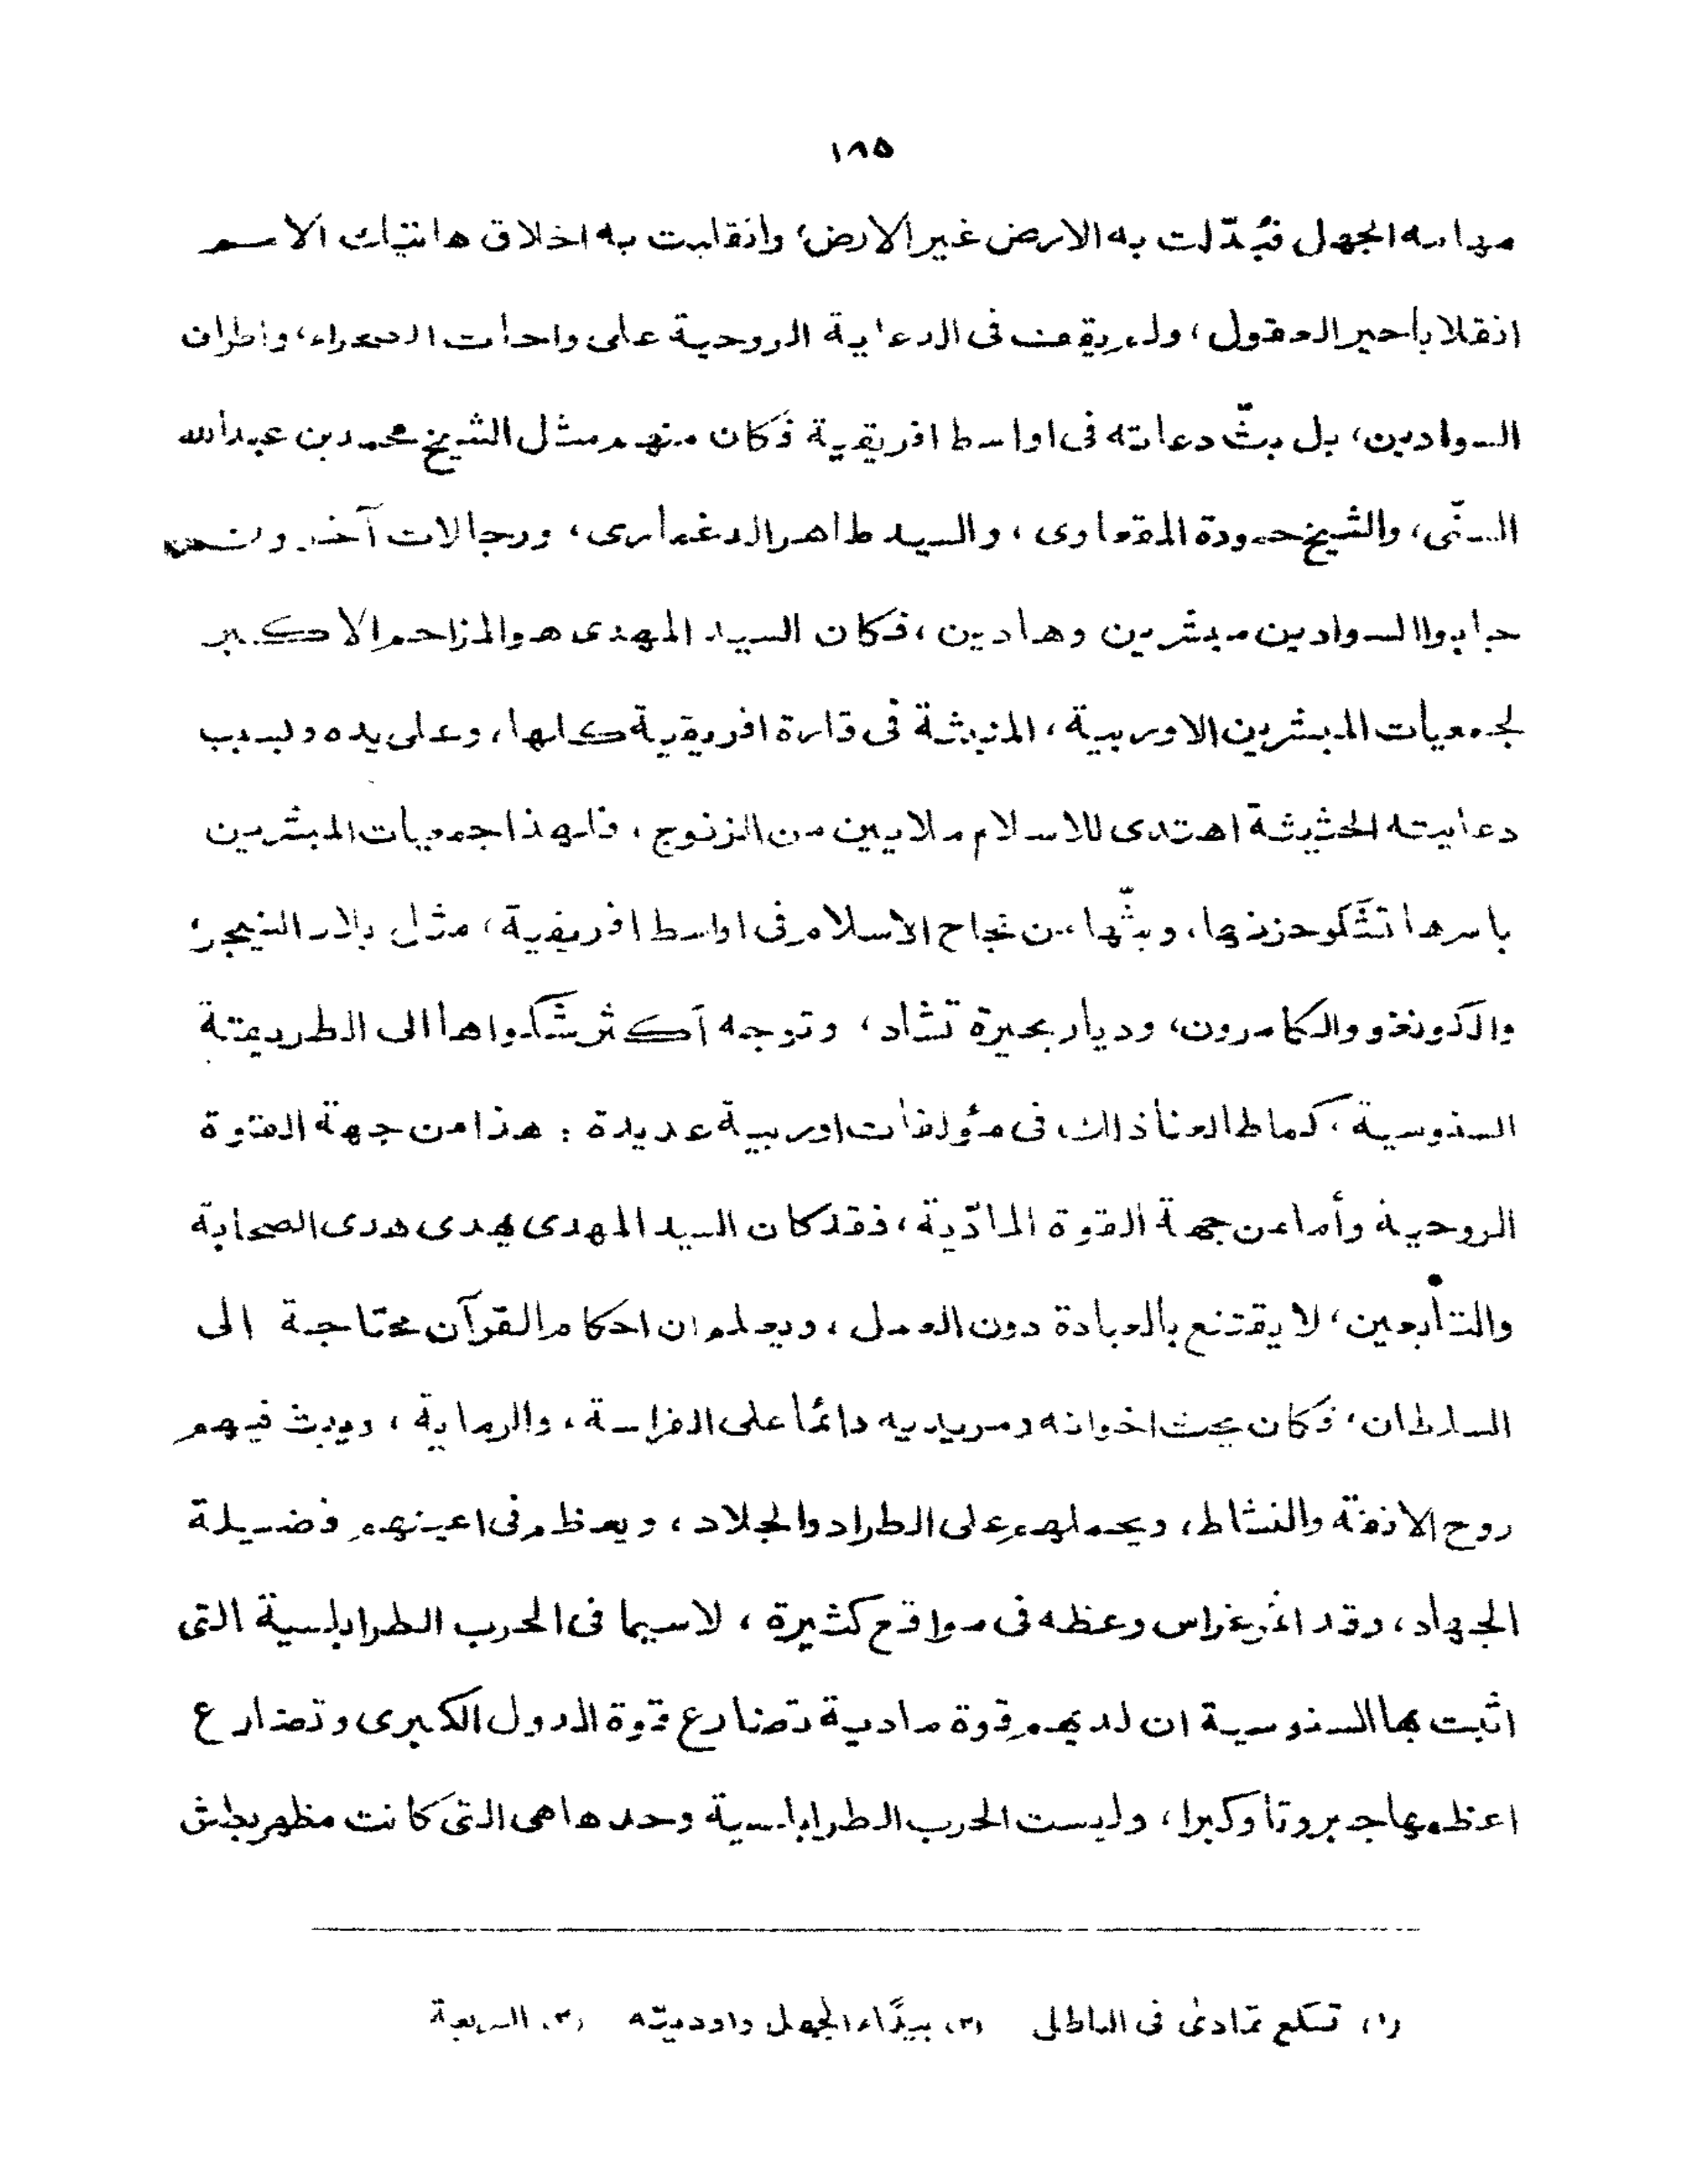 ١٨٥
مهامه الجهل فبُدّلت به الارض غير الارض، وانقلبت به اخلاق هاتيك الامم
انقلابا حير العقول، ولم يقف فى الدعاية الروحية على واحات الصحراء، واطراف
السوادين، بل بثّ دعاته فى اواسط افريقية فكان منهم مثل الشيخ محمد بن عبدالله
السنّى، والشيخ حمودة المقعاوى، والسيد طاهر الدغمارى، ورجالات آخرون
جابوا السوادين مبشرين وهادين، فكان السيد المهدى هو المزاحم الاكبر
لجمعيات المبشرين الاوربية، المنبثة فى قارة افريقية كلها، وعلى يده وبسبب
دعايته الحثيثة اهتدى للاسلام ملايين من الزنوج، فلهذا جمعيات المبشرين
باسرها تشكو حزنها، وبثّها من نجاح الاسلام فى اواسط افريقية، مثل بلاد النيجر،
والكونغو والكامرون، وديار بحيرة تشاد، وتوجه أكثر شكواها الى الطريقة
السنوسية، كما طالعنا ذلك فى مؤلفات اوربية عديدة : هذا من جهة القوة
الروحية وأما من جهة القوة المادّية، فقد كان السيد المهدى يهدى هدى الصحابة
والتابعين، لا يقتنع بالعبادة دون العمل، ويعلم ان احكام القرآن محتاجة الى
السلطان، فكان يحث اخوانه ومريديه دائمًا على الفراسة، والرماية، ويبث فيهم
روح الانفة والنشاط، ويحملهم على الطراد والجلاد، ويعظم فى اعينهم فضيلة
الجهاد، وقد اثمر غراس وعظه فى مواقع كثيرة، لاسيما فى الحرب الطرابلسية التى
اثبت بها السنوسية ان لديهم قوة مادية تضارع قوة الدول الكبرى وتضارع
اعظمها جبروتا وكبرا، وليست الحرب الطرابلسية وحدها هى التى كانت مظهر بطش
(١) تسكع تمادىٰ فى الباطل (٢) بيدًاء الجهل واوديته (٣)